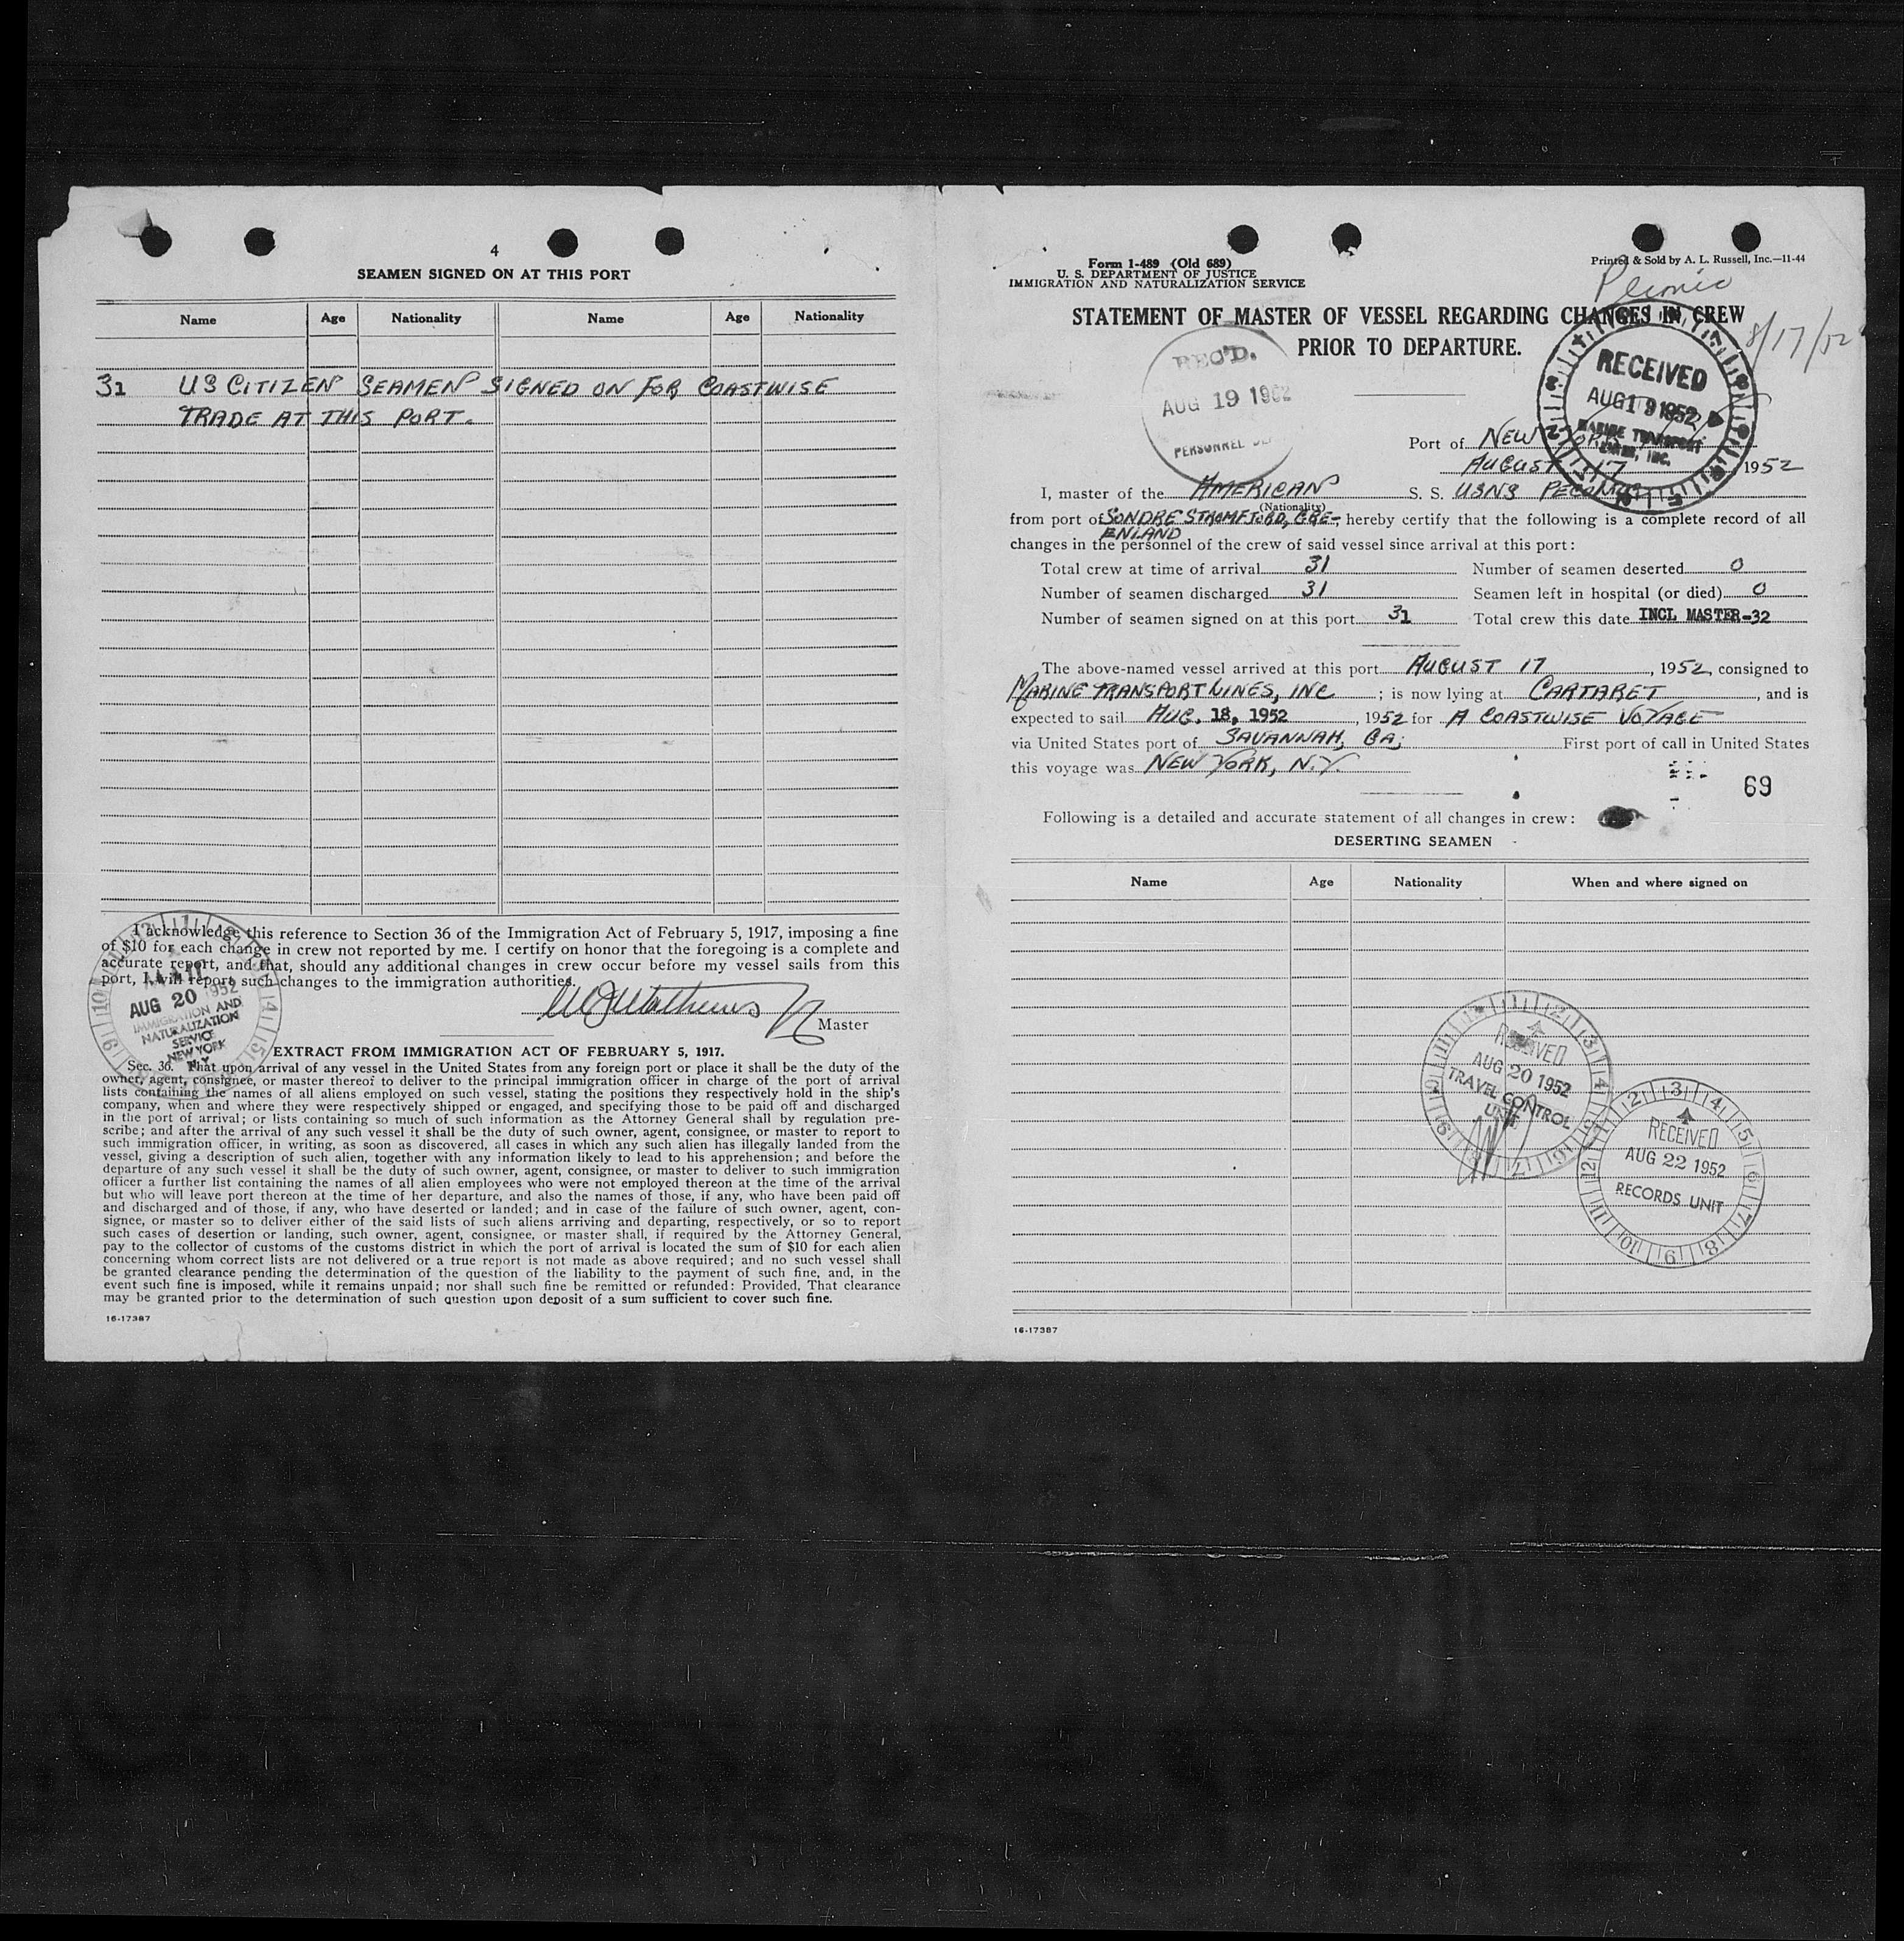 4
SEAMEN SIGNED ON AT THIS PORT
Name Age Nationality Name Age Nationality
31 US CITIZEN SEAMEN SIGNED ON FOR COASTWISE
TRADE AT THIS PORT.
I acknowledge this reference to Section 36 of the Immigration Act of February 5, 1917, imposing a fine
of $10 for each change in crew not reported by me. I certify on honor that the foregoing is a complete and
accurate report, and that, should any additional changes in crew occur before my vessel sails from this
port, I will report such changes to the immigration authorities.
Master
AUG 20 1952
IMMIGRATION AND
NATURALIZATION
SERVICE
NEW YORK
N.Y.
EXTRACT FROM IMMIGRATION ACT OF FEBRUARY 5, 1917.
Sec. 36. That upon arrival of any vessel in the United States from any foreign port or place it shall be the duty of the
owner, agent, consignee, or master thereof to deliver to the principal immigration officer in charge of the port of arrival
lists containing the names of all aliens employed on such vessel, stating the positions they respectively hold in the ship's
company, when and where they were respectively shipped or engaged, and specifying those to be paid off and discharged
in the port of arrival; or lists containing so much of such information as the Attorney General shall by regulation pre-
scribe; and after the arrival of any such vessel it shall be the duty of such owner, agent, consignee, or master to report to
such immigration officer, in writing, as soon as discovered, all cases in which any such alien has illegally landed from the
vessel, giving a description of such alien, together with any information likely to lead to his apprehension; and before the
departure of any such vessel it shall be the duty of such owner, agent, consignee, or master to deliver to such immigration
officer a further list containing the names of all alien employees who were not employed thereon at the time of the arrival
but who will leave port thereon at the time of her departure, and also the names of those, if any, who have been paid off
and discharged and of those, if any, who have deserted or landed; and in case of the failure of such owner, agent, con-
signee, or master so to deliver either of the said lists of such aliens arriving and departing, respectively, or so to report
such cases of desertion or landing, such owner, agent, consignee, or master shall, if required by the Attorney General,
pay to the collector of customs of the customs district in which the port of arrival is located the sum of $10 for each alien
concerning whom correct lists are not delivered or a true report is not made as above required; and no such vessel shall
be granted clearance pending the determination of the question of the liability to the payment of such fine, and, in the
event such fine is imposed, while it remains unpaid; nor shall such fine be remitted or refunded: Provided, That clearance
may be granted prior to the determination of such question upon deposit of a sum sufficient to cover such fine.
16-17387
Form 1-489 (Old 689)
U. S. DEPARTMENT OF JUSTICE
IMMIGRATION AND NATURALIZATION SERVICE
Printed & Sold by A. L. Russell, Inc.—11-44
STATEMENT OF MASTER OF VESSEL REGARDING CHANGES IN CREW
PRIOR TO DEPARTURE.
8/17/52
REC'D.
AUG 19 1952
PERSONNEL
RECEIVED
AUG 19 1952
MARINE TRANSPORT
LINES, INC.
Port of NEW YORK
AUGUST 17 1952
I, master of the AMERICAN S. S. USNS PECONIC
(Nationality)
from port of SONDRE STROMFJORD, GRE- hereby certify that the following is a complete record of all
ENLAND
changes in the personnel of the crew of said vessel since arrival at this port:
Total crew at time of arrival 31 Number of seamen deserted 0
Number of seamen discharged 31 Seamen left in hospital (or died) 0
Number of seamen signed on at this port 31 Total crew this date INCL MASTER-32
The above-named vessel arrived at this port AUGUST 17, 1952, consigned to
MARINE TRANSPORT LINES, INC; is now lying at CARTARET, and is
expected to sail AUG. 18, 1952, 1952 for A COASTWISE VOYAGE
via United States port of SAVANNAH, GA; First port of call in United States
this voyage was NEW YORK, N.Y.
69
Following is a detailed and accurate statement of all changes in crew:
DESERTING SEAMEN
Name Age Nationality When and where signed on
RECEIVED
AUG 20 1952
TRAVEL CONTROL
UNIT
RECEIVED
AUG 22 1952
RECORDS UNIT
16-17387